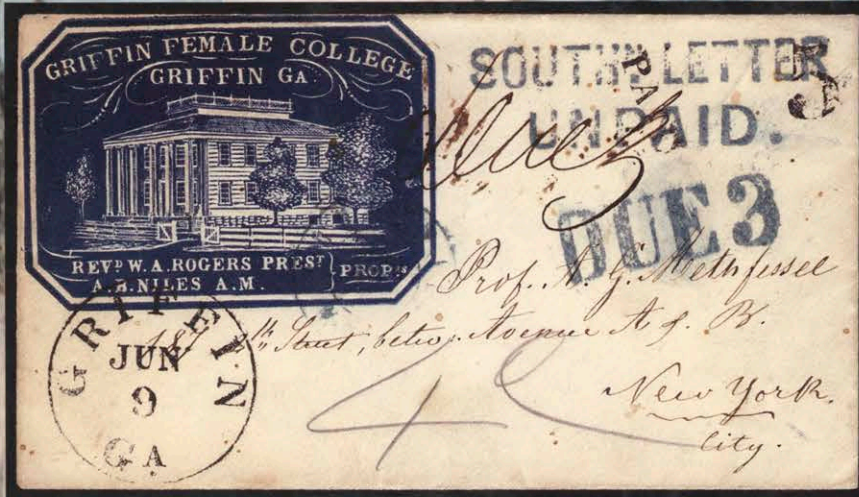 GRIFFIN FEMALE COLLEGE
GRIFFIN GA.
REVD W. A. ROGERS PREST
A. B. NILES A. M.
PROPRS
SOUTHN. LETTER
UNPAID.
PAID
5
Due 3
DUE 3
GRIFFIN
JUN
9
GA
Prof. A. G. Methfessel
Street, betw. Avenue A & B.
New York.
City.